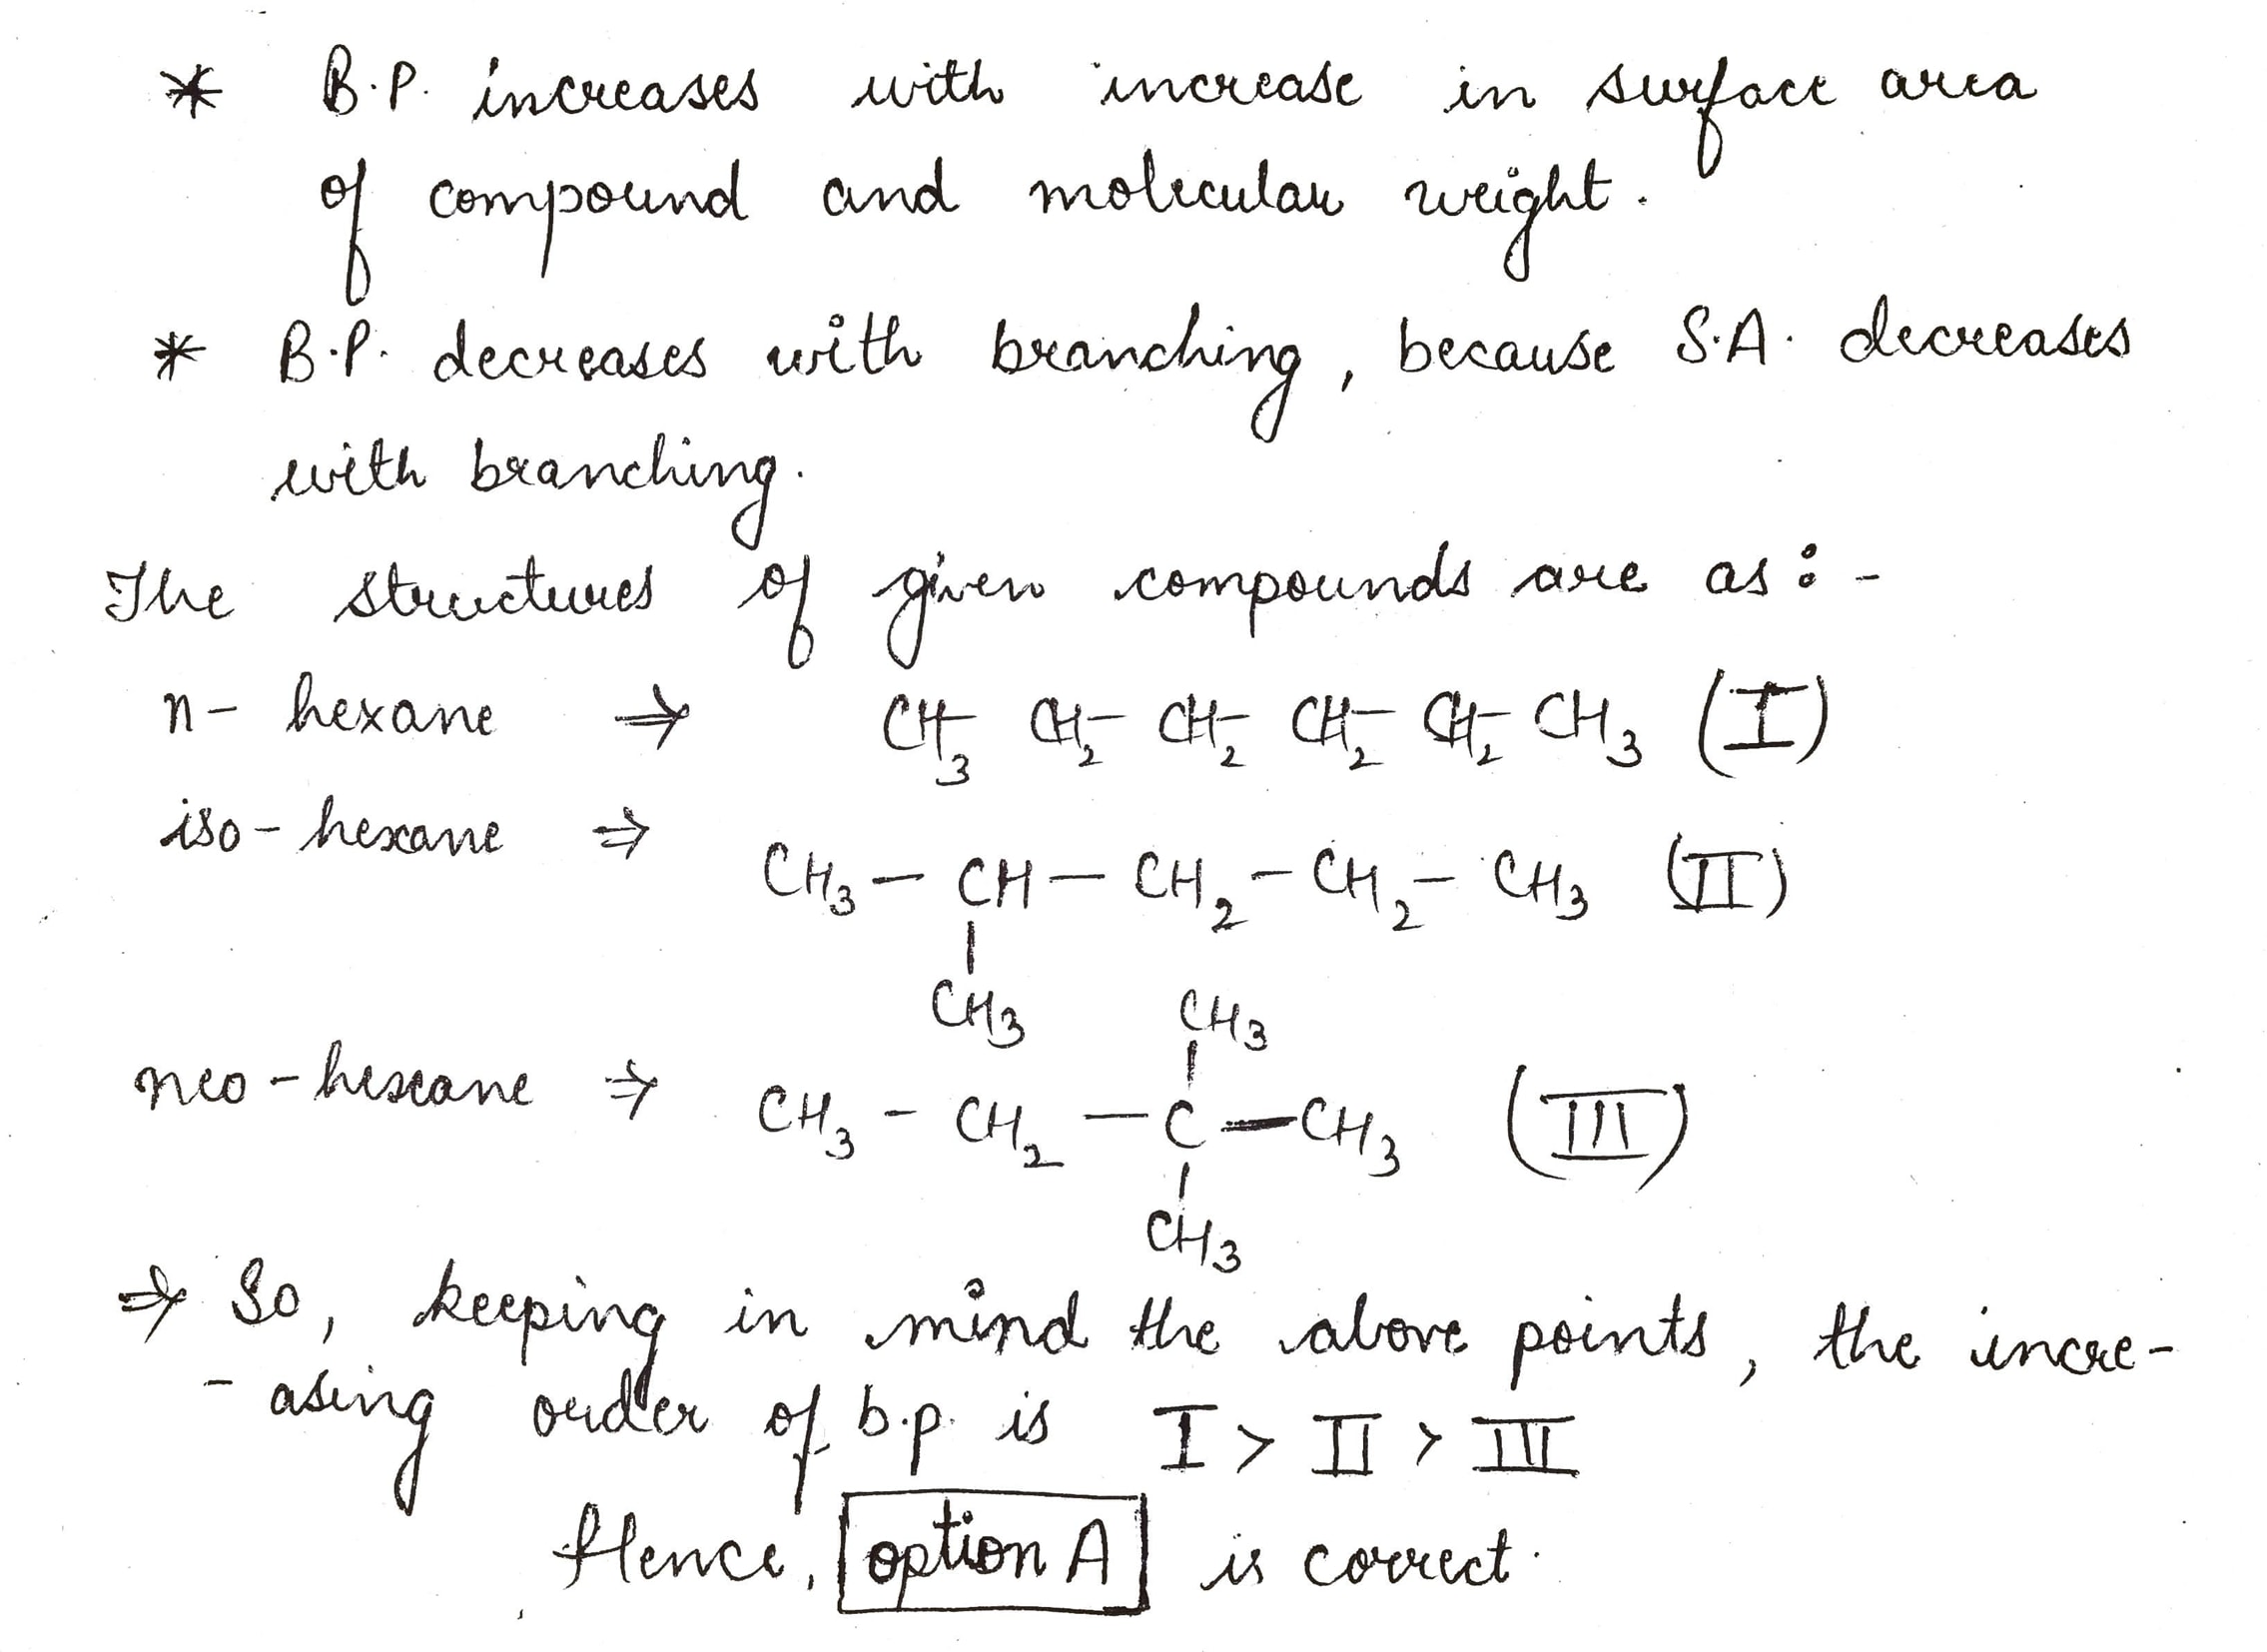 * B.P. increases with increase in surface area
of compound and molecular weight.
* B.P. decreases with branching, because S.A. decreases
with branching.
The structures of given compounds are as :-
n- hexane ⇒ CH3- CH2- CH2- CH2- CH2- CH3 (I)
iso- hexane ⇒
CH3 - CH - CH2 - CH2 - CH3 (II)
|
CH3
CH3
|
neo-hexane ⇒ CH3 - CH2 - C - CH3 (III)
|
CH3
⇒ So, keeping in mind the above points, the incre-
- asing order of b.p. is I > II > III
Hence, option A is correct.